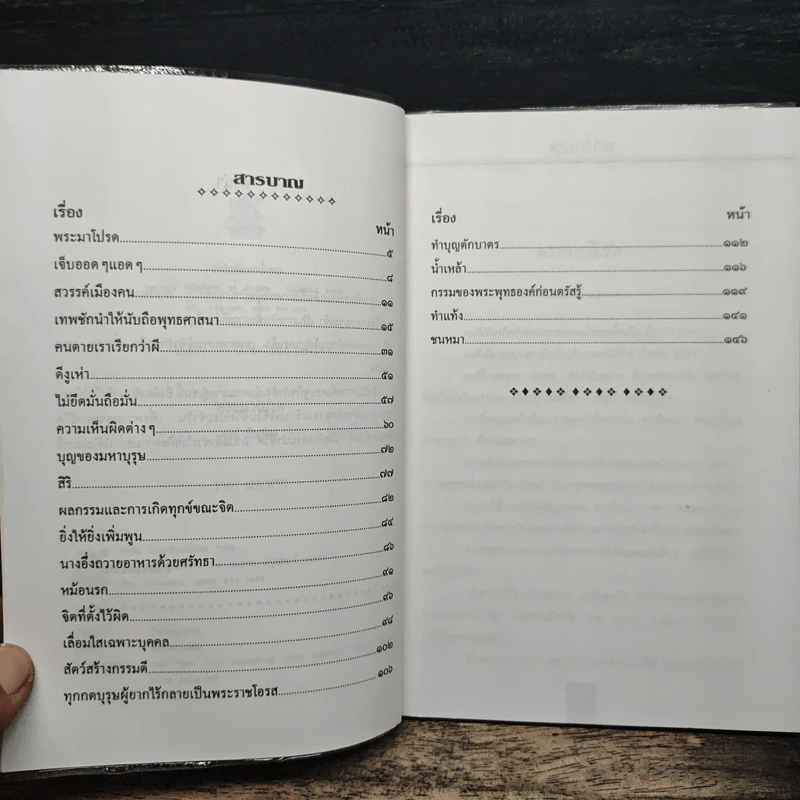 สารบาญ
เรื่อง หน้า
พระมาโปรด ๕
เจ็บออด ๆ แอด ๆ ๘
สวรรค์เมืองคน ๑๑
เทพชักนำให้นับถือพุทธศาสนา ๑๕
คนตายเราเรียกว่าผี ๓๑
ดีงูเห่า ๕๑
ไม่ยึดมั่นถือมั่น ๕๗
ความเห็นผิดต่าง ๆ ๖๐
บุญของมหาบุรุษ ๗๒
สิริ ๗๗
ผลกรรมและการเกิดทุกข์ขณะจิต ๘๒
ยิ่งให้ยิ่งเพิ่มพูน ๘๔
นางอึ่งถวายอาหารด้วยศรัทธา ๘๖
หม้อนรก ๙๑
จิตที่ตั้งไว้ผิด ๙๖
เลื่อมใสเฉพาะบุคคล ๙๘
สัตว์สร้างกรรมดี ๑๐๒
ทุกกตบุรุษผู้ยากไร้กลายเป็นพระราชโอรส ๑๐๖
เรื่อง หน้า
ทำบุญตักบาตร ๑๑๒
น้ำเหล้า ๑๑๖
กรรมของพระพุทธองค์ก่อนตรัสรู้ ๑๑๙
ทำแท้ง ๑๔๑
ชนหมา ๑๔๖